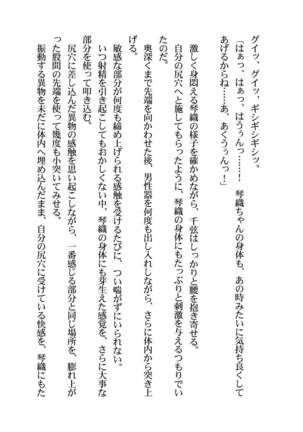 グイッ、グイッ、ギシギシギシッ。
「はぁっ、はぁっ、はうぅんっ……！　琴織ちゃんの身体も、あの時みたいに気持ち良くして
あげるからねっ……あ、あくうぅんっ……！」
激しく身悶える琴織の様子を確かめながら、千弦はしっかりと腰を抱き寄せる。
自分の尻穴へと施してもらったように、琴織の身体にもたっぷりと刺激を与えるつもりでい
たのだ。
奥深くまで先端を向かわせた後、男性器を何度も出し入れしながら、さらに体内から突き上
げる。
敏感な部分が何度も締め上げられる感触を受けるたびに、つい喘がずにいられない。
いつ射精を引き起こしてもおかしくない中、琴織の身体にも芽生えた感覚を、さらに大事な
部分を使って叩き込む。
尻穴に差し込んだ異物の感触を思い起こしながら、一番感じる部分と同じ場所を、膨れ上が
った股間の先端を使って幾度も小突いてみせる。
振動する異物を未だに体内へ埋め込んだまま、自分の尻穴に受けている快感を、琴織にもた